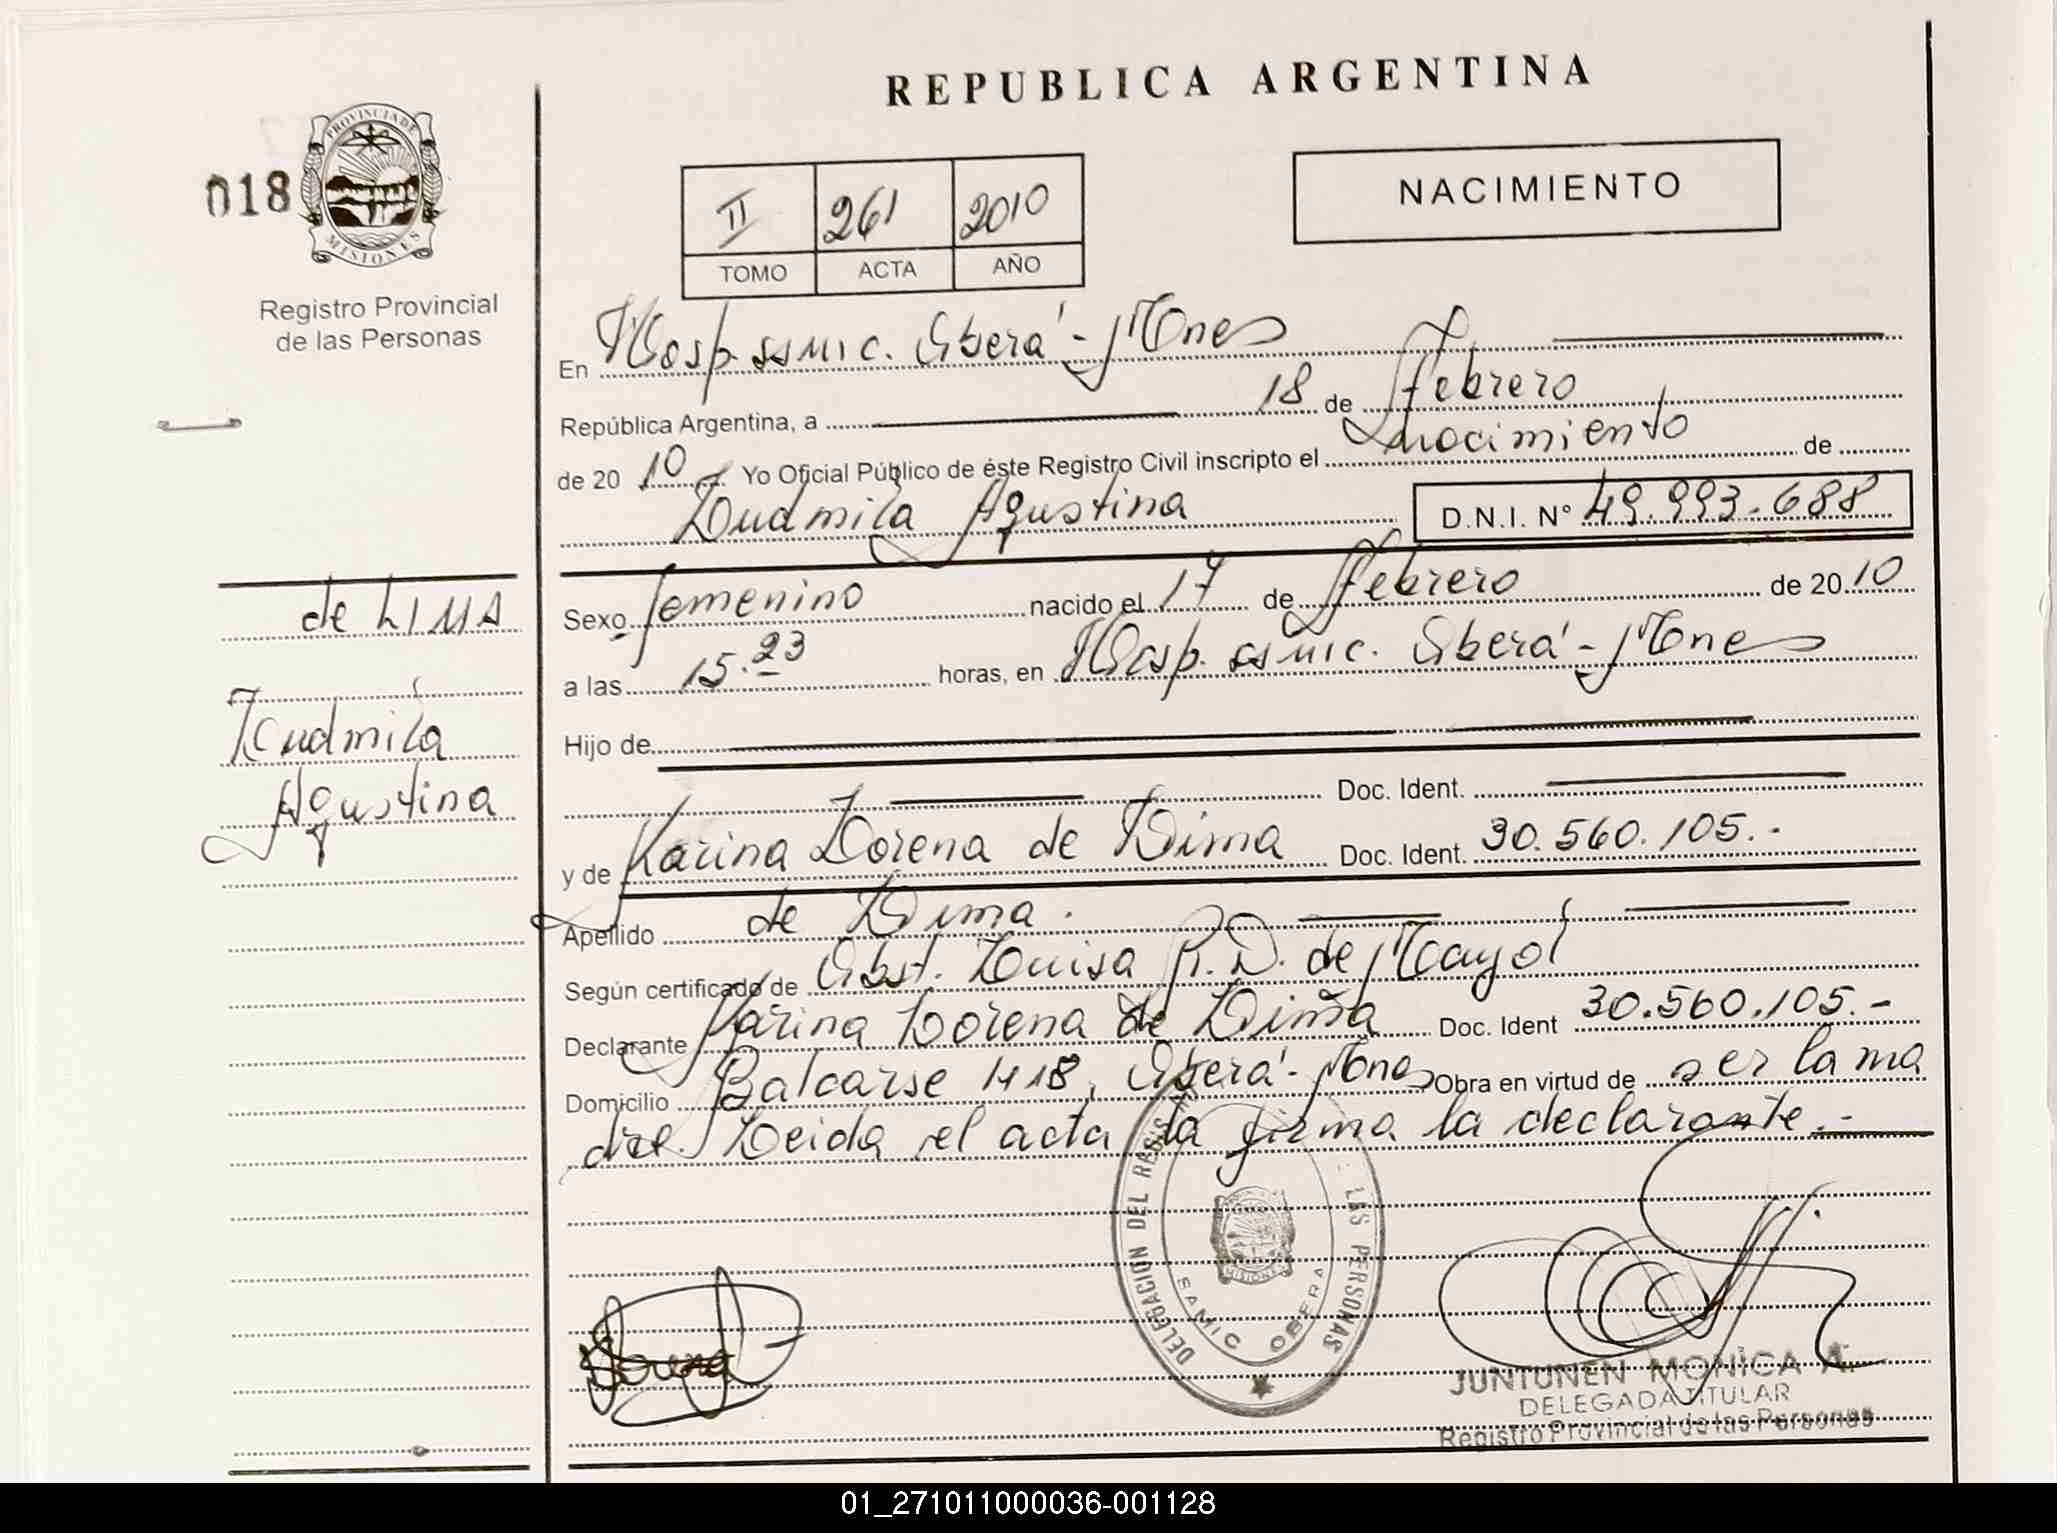 REPUBLICA ARGENTINA
018
PROVINCIA DE
MISIONES
Registro Provincial
de las Personas
II 261 2010
TOMO ACTA AÑO
NACIMIENTO
En Hosp. SAMIC. Oberá - Mnes
República Argentina, a 18 de febrero
de 20 10. Yo Oficial Público de éste Registro Civil inscripto el nacimiento de
Ludmila Agustina D.N.I. Nº 49.993.688
de LIMA
Ludmila
Agustina
Sexo femenino nacido el 17 de febrero de 20 10
a las 15.23 horas, en Hosp. SAMIC. Oberá - Mnes
Hijo de
Doc. Ident.
y de Karina Lorena de Lima Doc. Ident. 30.560.105.-
Apellido de Lima.
Según certificado de Obst. Luisa R.D. de Mayol
Declarante Karina Lorena de Lima Doc. Ident 30.560.105.-
Domicilio Balcarse 1418, Oberá - Mnes Obra en virtud de ser la ma
dre. Leida el acta la firma la declarante.-
DELEGACION DEL LAS PERSONAS
SAMIC OBERA
MISIONES
JUNTUNEN MONICA A.
DELEGADA TITULAR
Registro Provincial de las Personas
01_271011000036-001128